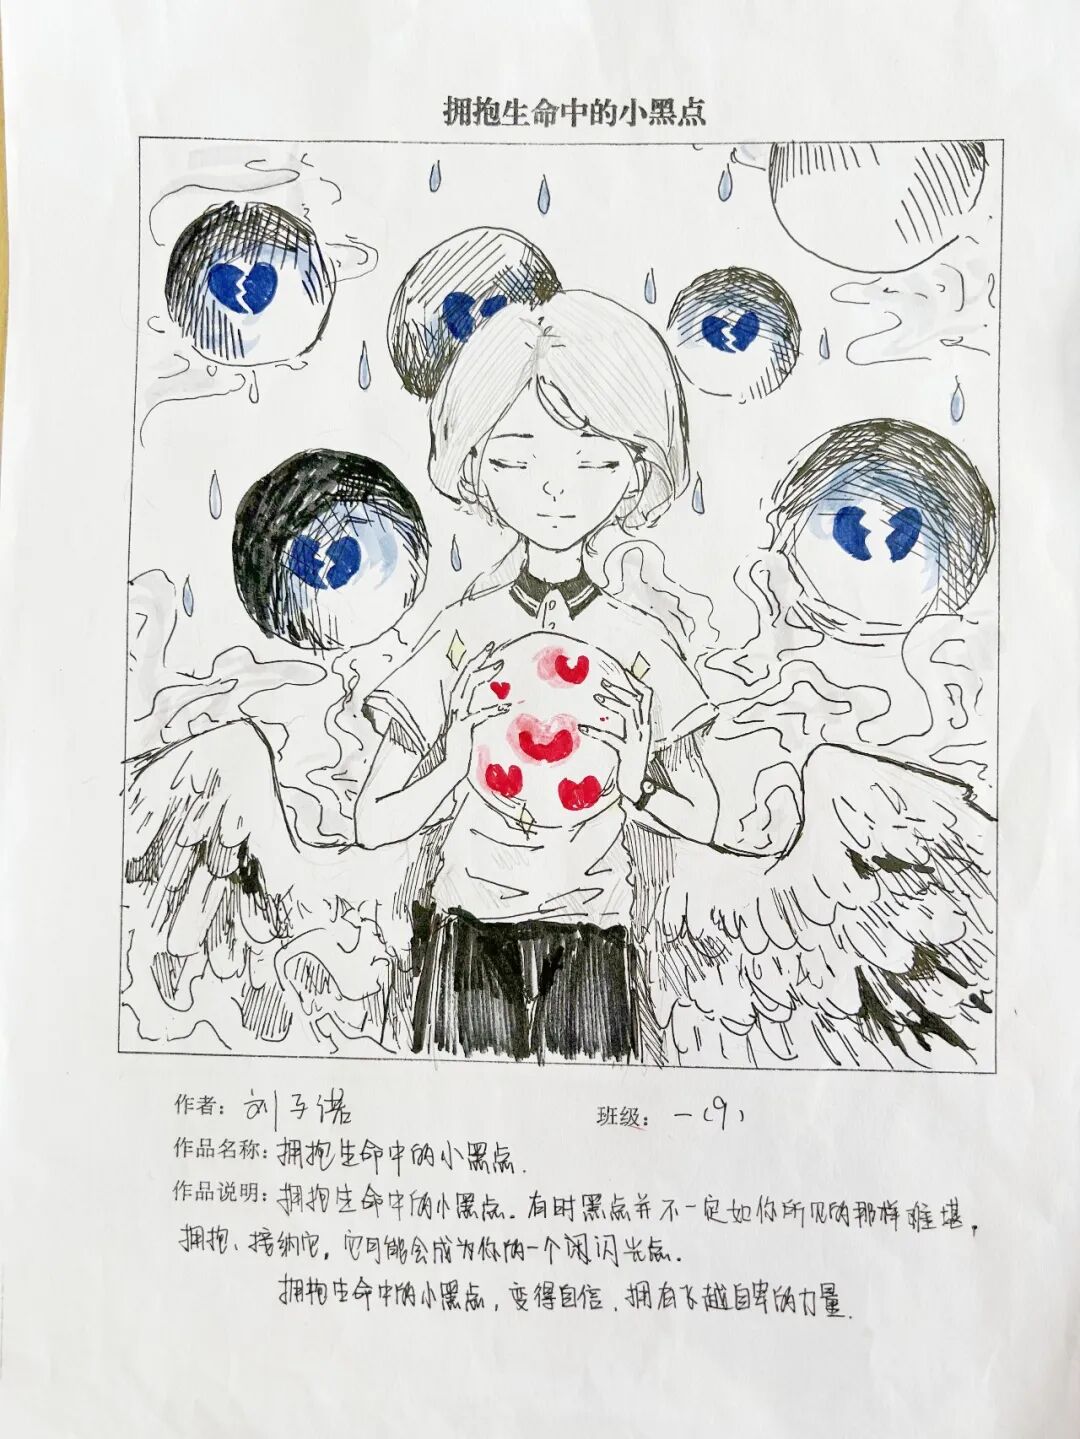 拥抱生命中的小黑点
作者：刘子偌
班级：一(9)
作品名称：拥抱生命中的小黑点.
作品说明：拥抱生命中的小黑点.有时黑点并不一定如你所见的那样难堪，
拥抱、接纳它，它可能会成为你的一个闪闪光点.
拥抱生命中的小黑点，变得自信，拥有飞越自卑的力量.